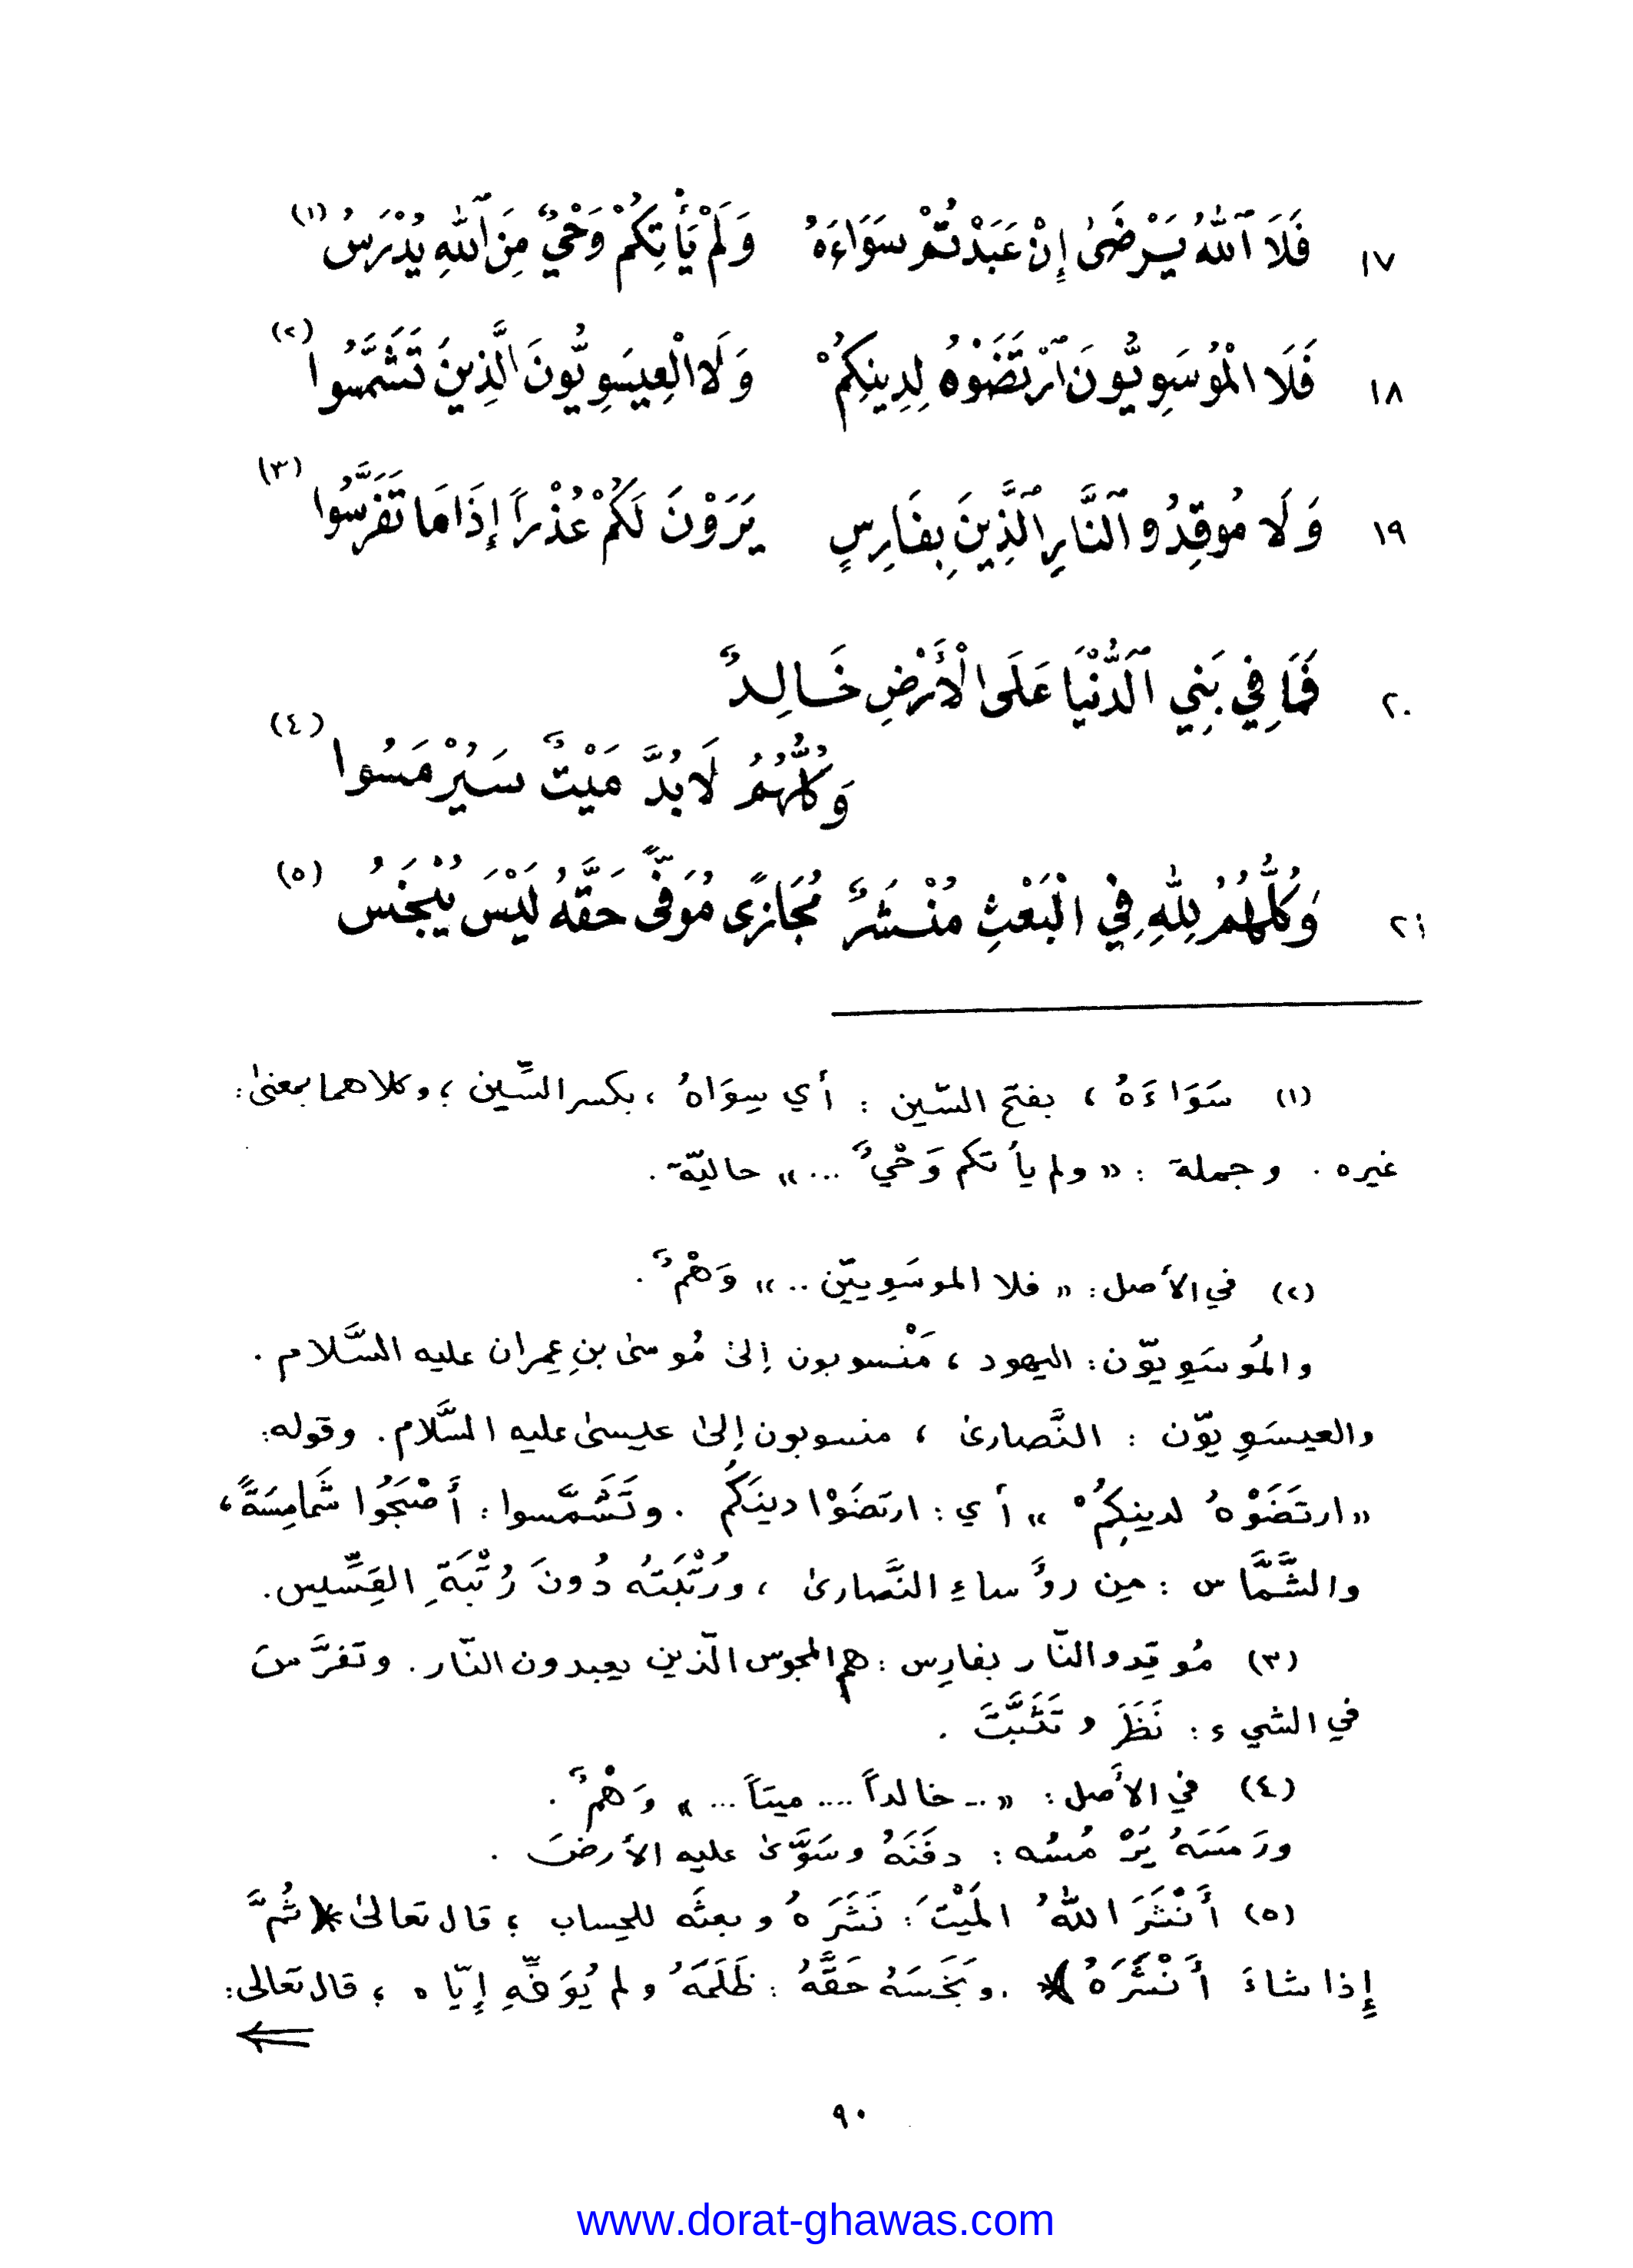 ١٧ فَلَا ٱللهُ يَرْضَىٰ إِنْ عَبَدْتُمْ سَوَاءَهُ وَلَمْ يَأْتِكُمْ وَحْيٌ مِنَ ٱللهِ يُدْرَسُ (١)
١٨ فَلَا الْمُوسَوِيُّونَ ٱرْتَضَوْهُ لِدِينِكُمْ وَلَا الْعِيسَوِيُّونَ الَّذِينَ تَشَمَّسُوا (٢)
١٩ وَلَا مُوقِدُو ٱلنَّارِ ٱلَّذِينَ بِفَارِسٍ يَرَوْنَ لَكُمْ عُذْراً إِذَا مَا تَفَرَّسُوا (٣)
٢٠ فَمَا فِي بَنِي ٱلدُّنْيَا عَلَى الْأَرْضِ خَالِدٌ
وَكُلُّهُمُ لَابُدَّ مَيْتٌ سَيُرْمَسُوا (٤)
٢١ وَكُلُّهُمُ لِلهِ فِي الْبَعْثِ مُنْشَرٌ مُجَازًى مُوَفًّى حَقَّهُ لَيْسَ يُبْخَسُ (٥)
(١) سَوَاءَهُ ، بفتح السّين : أي سِوَاهُ ، بكسر السِّين ؛ وكلاهما بمعنىٰ :
غيره . وجملة : « ولم يأتكم وَحْيٌ ... » حاليّة .
(٢) في الأصل : « فلا الموسَوِيين .. » وَهْمٌ .
والمُوسَوِيّون : اليهود ، مَنْسوبون إلىٰ مُوسىٰ بنِ عِمران عليه السَّلام .
والعيسَوِيّون : النَّصارىٰ ، منسوبون إلىٰ عيسىٰ عليه السَّلام . وقوله :
« ارتَضَوْهُ لدينِكُمْ » أي : ارتضَوْا دينَكُم . وتَشَمَّسوا : أَصْبَحُوا شَمامِسَةً ،
والشَّمَّاس : مِن رؤَساءِ النَّصارىٰ ، ورُتْبَتهُ دُونَ رُتْبَةِ القِسِّيس .
(٣) مُوقِدو النّار بفارِس : هم المجوس الّذين يعبدون النّار . وتفرَّسَ
في الشيء : نَظَرَ وتَثَبَّتَ .
(٤) في الأصل : « ... خالداً .... ميتاً ... » وَهْمٌ .
ورَمَسَهُ يَرْمُسُه : دفَنَهُ وسَوَّىٰ عليه الأرضَ .
(٥) أَنْشَرَ اللهُ المَيْتَ : نَشَرَهُ وبعثَه للحِساب ؛ قال تعالىٰ ﴿ثُمَّ
إِذا شاءَ أَنْشَرَهُ﴾ . وبَخَسَهُ حَقَّهُ : ظَلَمَهُ ولم يُوَفِّهِ إِيّاه ؛ قال تعالى :
٩٠
www.dorat-ghawas.com